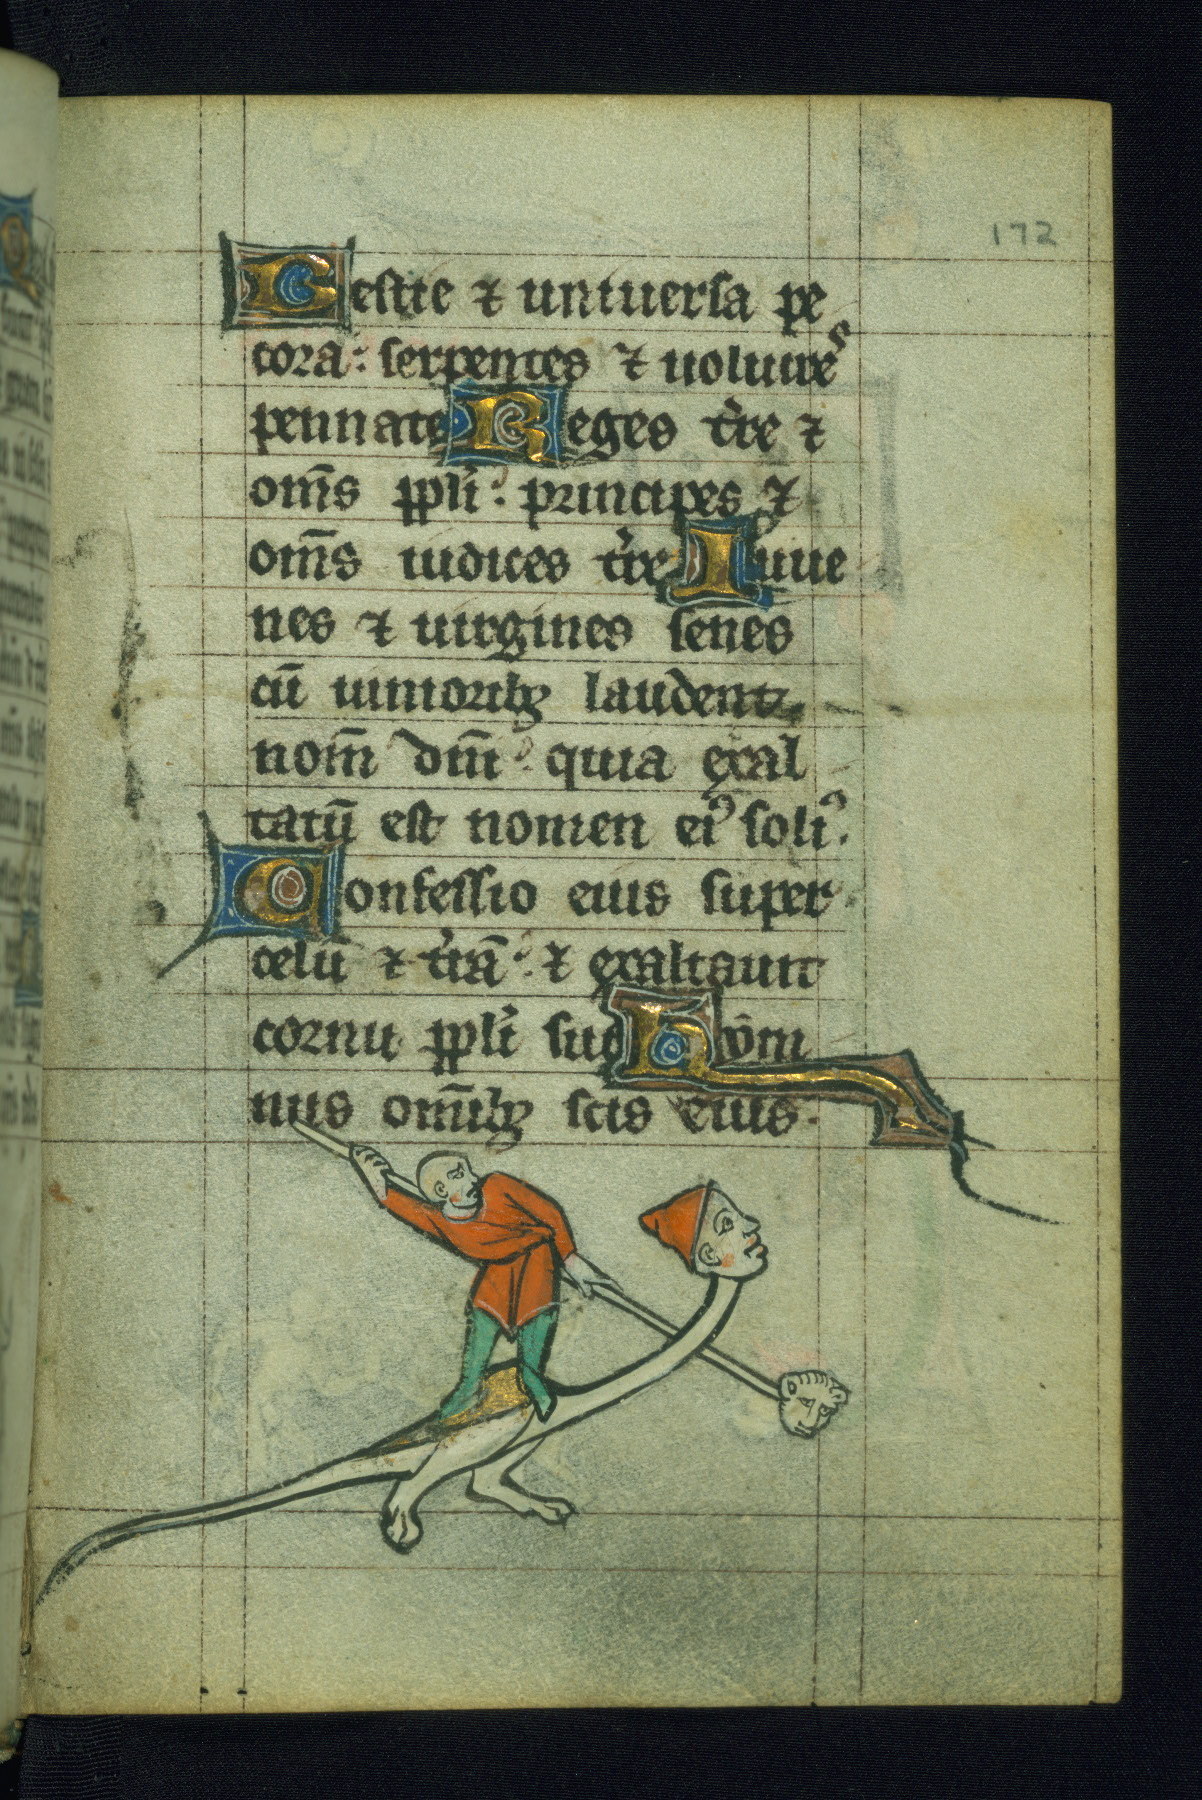 172
Bestie ⁊ uniuersa pe
cora: serpentes ⁊ uolucres
pennate Reges t're ⁊
om̄s ppl'i: principes ⁊
om̄s iudices t're Iuue
nes ⁊ uirgines senes
cū iunioribꝫ laudent
nom̄ dn̄i: quia exal
tatū est nomen eiꝰ soliꝰ.
Confessio eius super
celū ⁊ t'rā: ⁊ exaltauit
cornu ppl'i sui Hym
nus om̄ibꝫ scis eius.